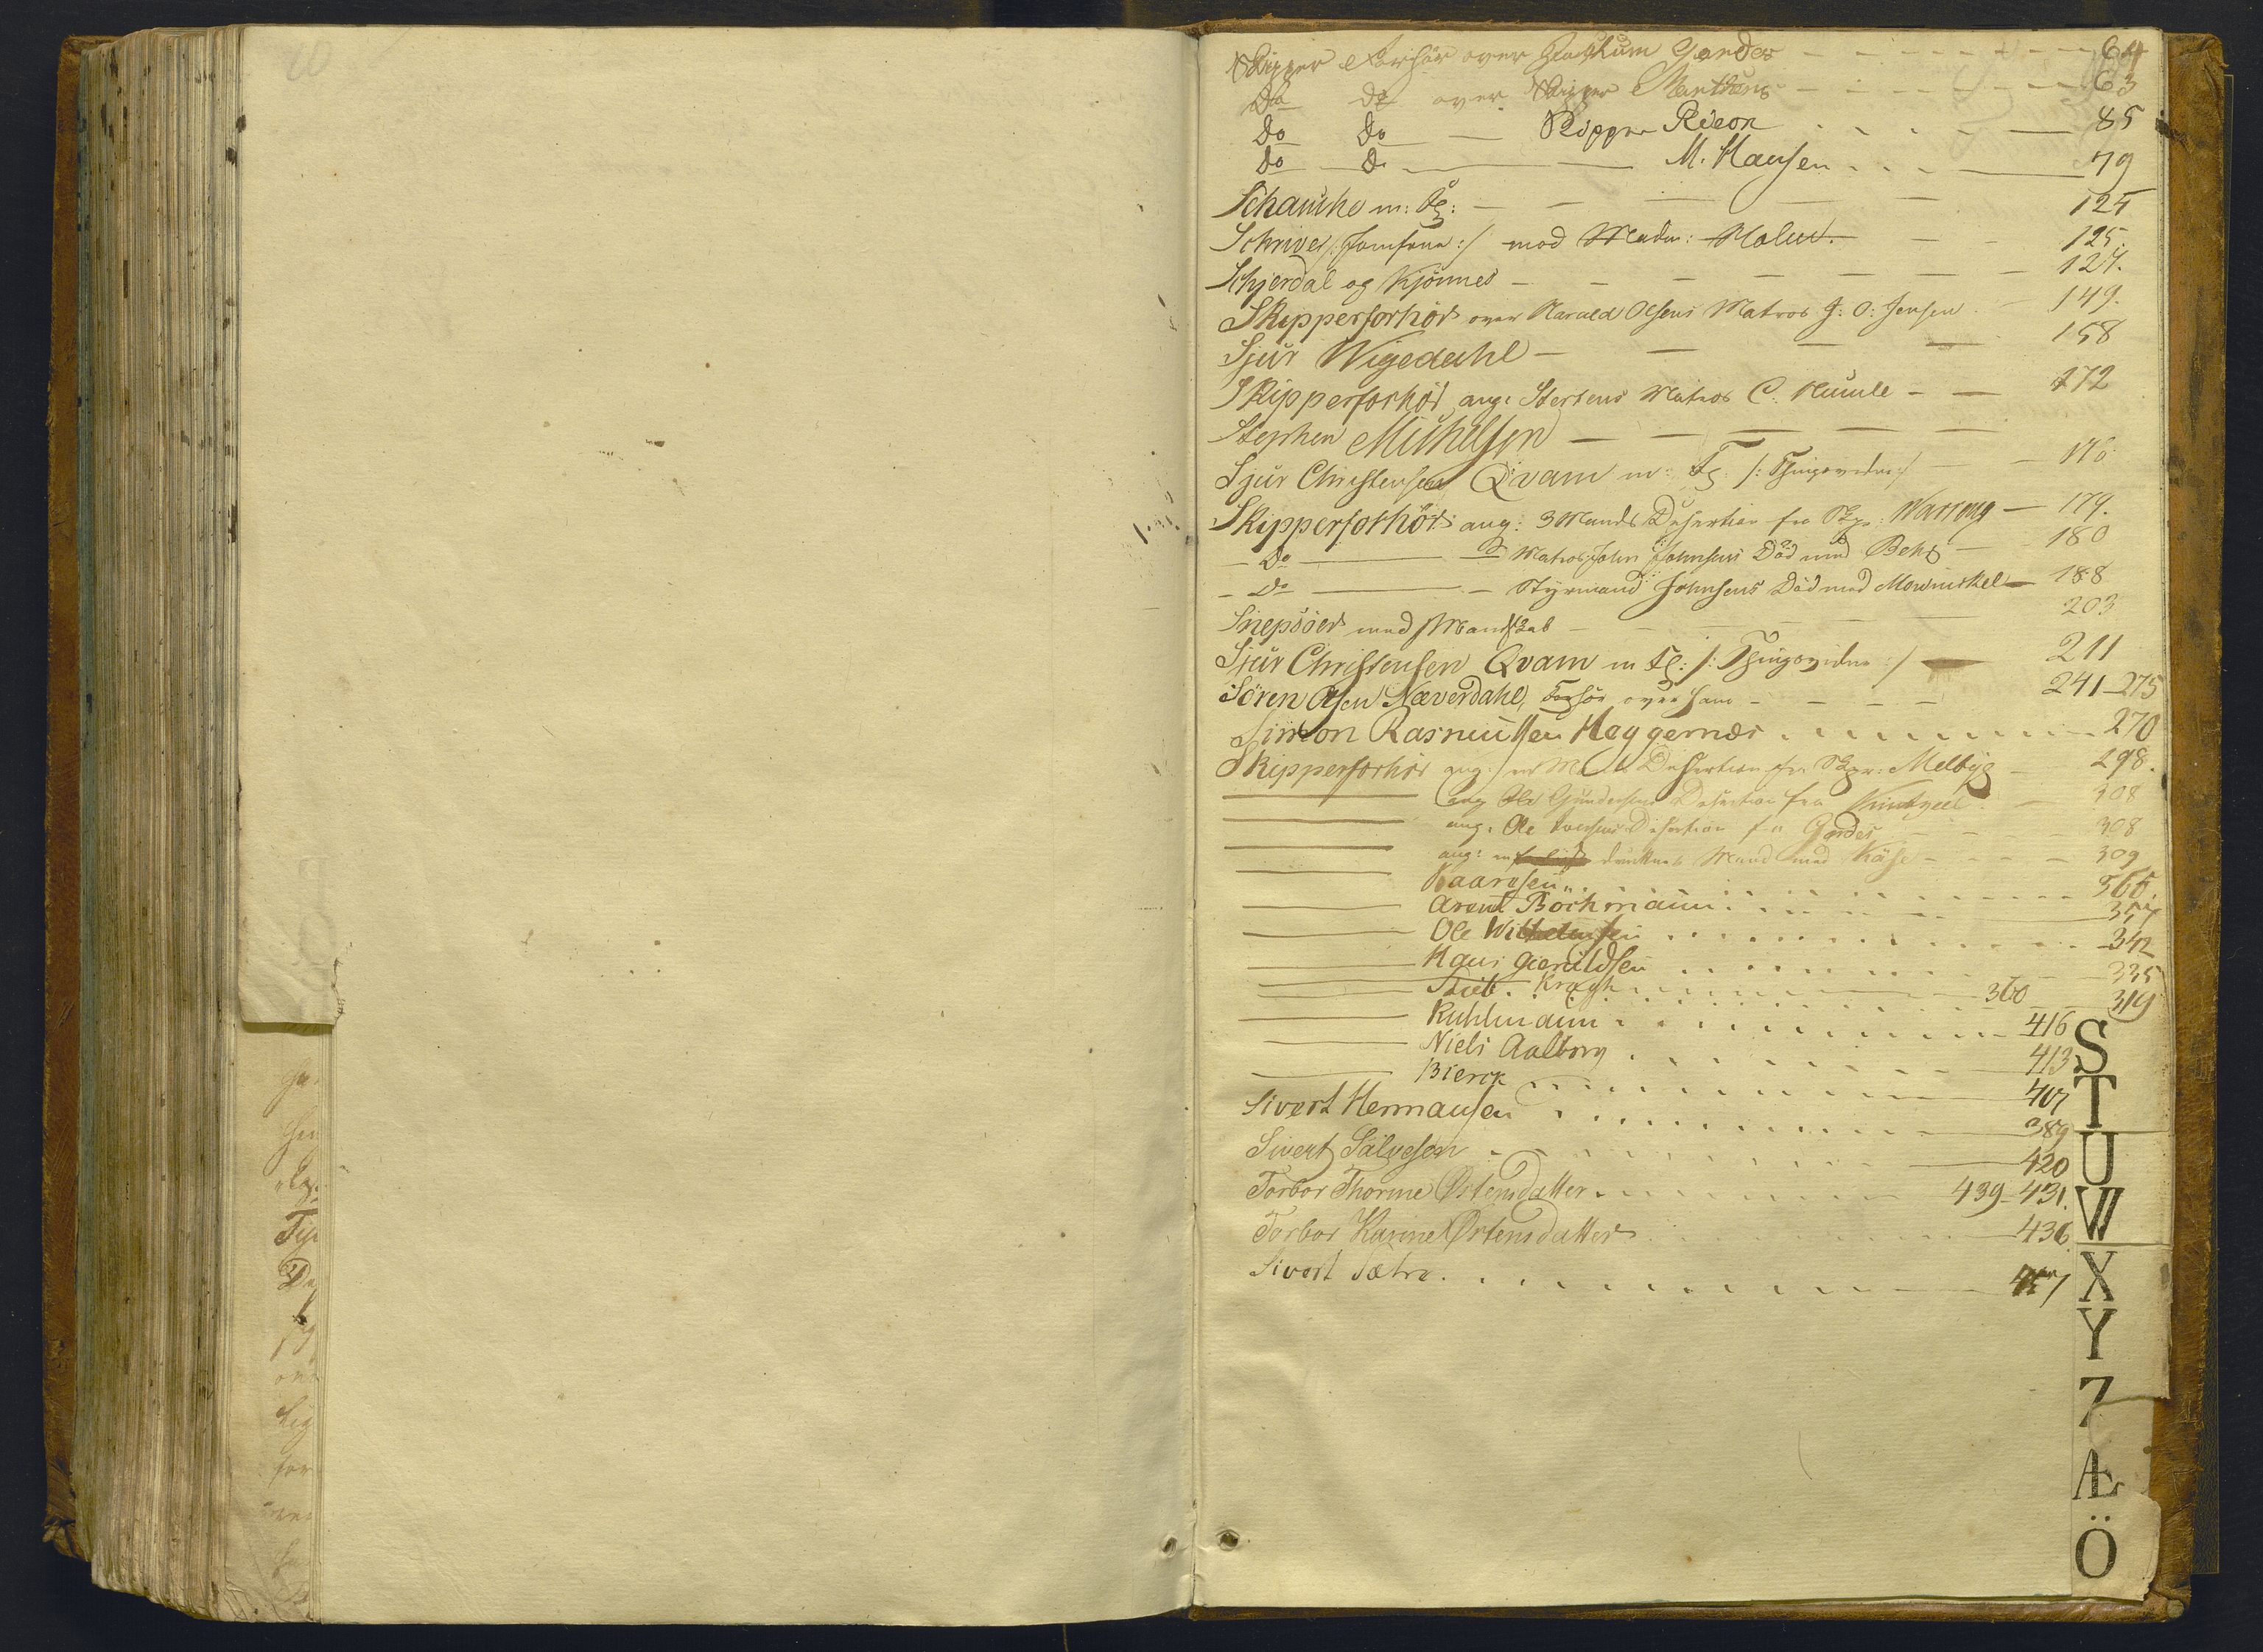 Skipper Forhør over Joachum Gerdes - - - 64
Do do over Skipper Marthens - - - 63
do do — Skipper Rieon . . . — 85
do do — M. Hansen . . . — 79
Schanche m: fl: — — — 124
Schriver /: Jomfrue :/ mod Madm: Holm. — — 125.
Schjerdal og Kjönnes — — — 127.
Skipperforhör over Harald Olsens Matros J: O: Jensen 149.
Sjur Wigedahl — — — 158
Skipperforhör ang: Stersens Matros C. Numle — — 172
Stephen Michelsen — — —
Sjur Christensen Qvam m: fl: /: Thingsvidne :/ — 176
Skipperforhör ang: 3 Mands Desertion fra Skpr: — 179.
— Do — Do Matros John Johnsens Död med Behr — 180
— Do — — Styrmand Johnsens Död med Mowinckel — 188
Snepöer med Mandskab — — — 203
Sjur Christensen Qvam m fl: /: Thingsvidne :/ — 211
Sören Olsen Næverdahl, Forhör over ham — — — 241-275
Simon Rasmussen Heggernæs . . . 270
Skipperforhör ang: en Mands Desertion fra Skpr: Melbye — 298.
— ang Ole Gundersens Desertion fra — 308
— ang. Ole Desertion fra Gerdes — — — 308
— ang: en druknet Mand med Käse — — — 309
— Kaaresen . . . 366.
— Arent Bochmann . . . 357
— Ole Wilhelmsen . . . 342
— Hans Gieruldsen . . . 335
— Krogh . . . 360 — 319
— Kuhlmann . . . 416
— Niels Aalborg . . . 413
— Bierck . . . 407
Sivert Hermansen . . . 389
Sivert Sälvesen . . . 420
Torbor Thorine Østensdatter . . . 439-431.
Torbor Karine Østensdatter . . . 436
Sivert Sætre . . . 457
S
T
U
W
X
Y
Z
Æ
Ö